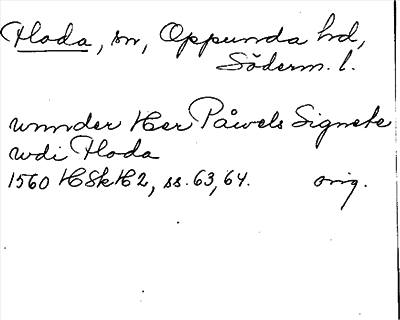 Floda, sn, Oppunda hd,
Söderm. l.
wnnder Her Påwels Signete
wdi Floda
1560 HSkH2, ss. 63, 64. orig.